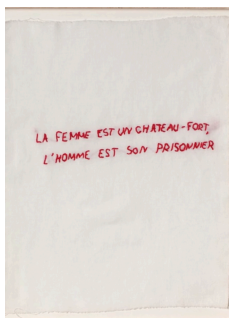 LA FEMME EST UN CHATEAU-FORT,
L'HOMME EST SON PRISONNIER